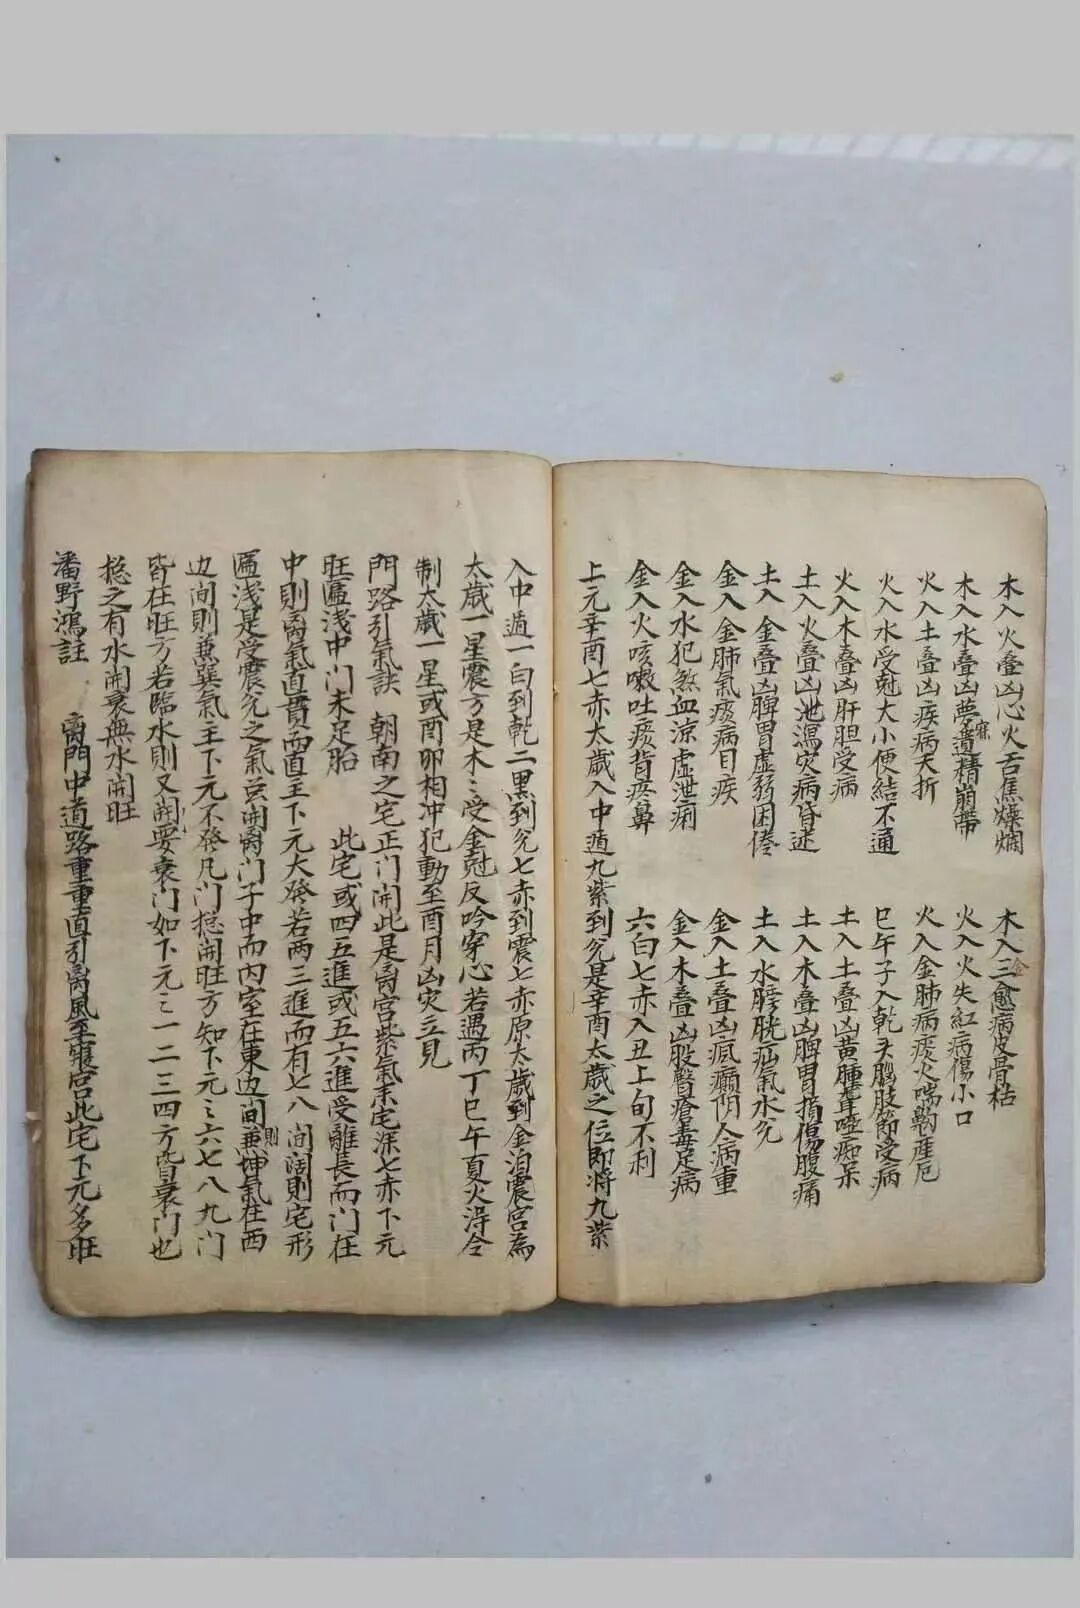 木入火叠凶心火舌焦燥爛　木入三愈病皮骨枯
木入水叠凶夢遺精崩帶　火入火失紅病傷小口
火入土叠凶疾病夭折　火入金肺病痰火喘
火入水受尅大小便結不通　巳午子入乾頭腦肢節受病
火入木叠凶肝胆受病　土入土叠凶黄腫聾啞痴呆
土入火叠凶泄瀉灾病昏迷　土入木叠凶脾胃指傷腹痛
土入金叠凶脾胃虚弱困倦　土入水膨胱疝氣水
金入金肺氣痰病目疾　金入土叠凶瘋癲阴人病重
金入水犯煞血凉虚泄痢　金入木叠凶股瘡毒足病
金入火咳嗽吐痰背疼鼻　六白七赤入丑上旬不利
上元辛酉七赤太歲入中遁九紫到兊是辛酉太歲之位即将九紫
入中遁一白到乾二黑到兊七赤到震七赤原太歲到金泊震宫為
太歲一星震方是木木受金尅反吟穿心若遇丙丁巳午夏火淂令
制太歲一星或酉卯相冲犯動至酉月凶灾立見
門路引氣訣　朝南之宅正门開此是离宫紫氣来宅深七赤下元
旺匾浅中门未足胎　此宅或四五進或五六進受離長而门在
中則离氣直貫而直主下元大發若两三進而有七八間阔則宅形
匾浅是受震兊之氣只開离门子中而内室在東边間則兼坤氣在西
边间則兼巽氣主下元不發凡门揔開旺方知下元元六七八九门
皆在旺方若臨水則又開要衰门如下元元一二三四方皆衰门也
揔之有水開衰無水開旺
潘野鴻註　离門中道路重重直引离風至寢宫此宅下元多旺